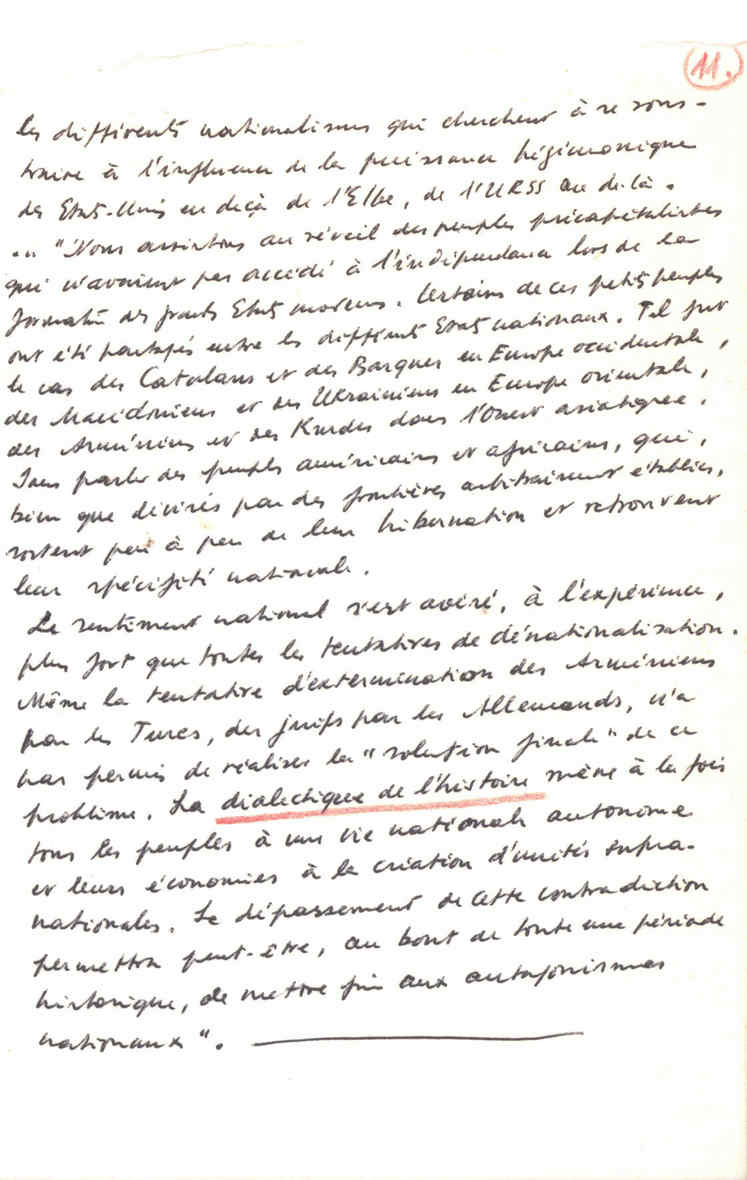 11.
les différents nationalismes qui cherchent à se sous-
traire à l'influence de la puissance hégémonique
des Etats-Unis en deçà de l'Elbe, de l'URSS au de-là.
... "Nous assistons au réveil des peuples précapitalistes
qui n'avaient pas accédé à l'indépendance lors de la
formation des grands Etats modernes. Certains de ces petits peuples
ont été partagés entre les différents Etats nationaux. Tel fut
le cas des Catalans et des Basques en Europe occidentale,
des Macédoniens et des Ukrainiens en Europe orientale,
des Arméniens et des Kurdes dans l'Ouest asiatique.
Sans parler des peuples américains et africains, qui,
bien que divisés par des frontières arbitrairement établies,
sortent peu à peu de leur hibernation et retrouvent
leur spécifité nationale.
Le sentiment national s'est avéré, à l'expérience,
plus fort que toutes les tentatives de dénationalisation.
Même la tentative d'extermination des Arméniens
par les Turcs, des juifs par les Allemands, n'a
pas permis de réaliser la "solution finale" de ce
problème. La dialectique de l'histoire mène à la fois
tous les peuples à une vie nationale autonome
et leurs économies à la création d'unités supra-
nationales. Le dépassement de cette contradiction
permettra peut-être, au bout de toute une période
historique, de mettre fin aux antagonismes
nationaux".